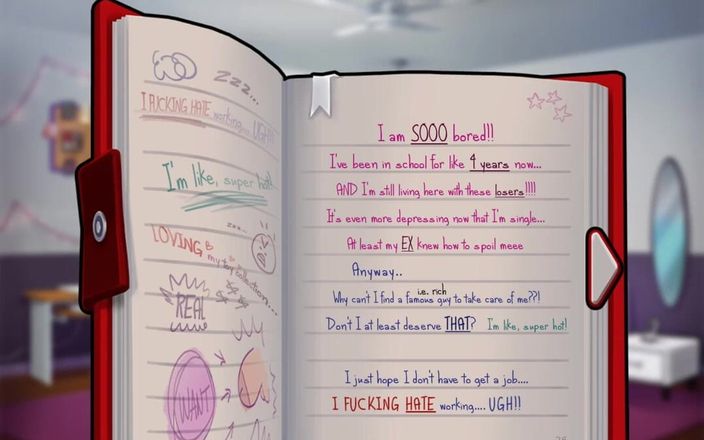 zzz...
I FUCKING HATE working.... UGH!!
I'm like, super hot!
zzz...
LOVING
my toy collection...
REAL
$ $ $
WANT
I am SOOO bored!!
I've been in school for like 4 years now...
AND I'm still living here with these losers!!!!
It's even more depressing now that I'm single...
At least my EX knew how to spoil meee
Anyway..
i.e. rich
Why can't I find a famous guy to take care of me??!
Don't I at least deserve THAT? I'm like, super hot!
I just hope I don't have to get a job....
I FUCKING HATE working.... UGH!!